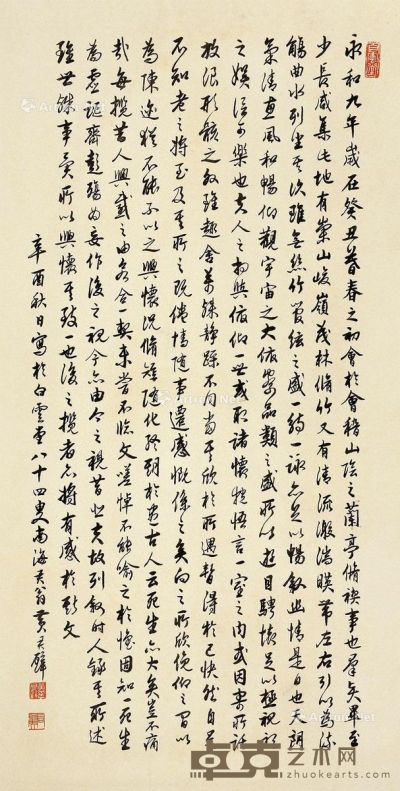 永和九年歲在癸丑暮春之初會於會稽山陰之蘭亭脩禊事也羣賢畢至
少長咸集此地有崇山峻嶺茂林脩竹又有清流激湍暎帶左右引以為流
觴曲水列坐其次雖無絲竹管絃之盛一觴一詠亦足以暢敘幽情是日也天朗
氣清惠風和暢仰觀宇宙之大俯察品類之盛所以遊目騁懷足以極視聽
之娛信可樂也夫人之相與俯仰一世或取諸懷抱悟言一室之內或因寄所託
放浪形骸之外雖趣舍萬殊靜躁不同當其欣於所遇暫得於己快然自足
不知老之將至及其所之既倦情隨事遷感慨係之矣向之所欣俛仰之間以
為陳迹猶不能不以之興懷況脩短隨化終期於盡古人云死生亦大矣豈不痛
哉每攬昔人興感之由若合一契未嘗不臨文嗟悼不能喻之於懷固知一死生
為虛誕齊彭殤為妄作後之視今亦由今之視昔悲夫故列敘時人錄其所述
雖世殊事異所以興懷其致一也後之攬者亦將有感於斯文
辛酉秋日寫於白雲堂八十四叟南海君翁黃君璧
卓克艺术网
zhuokearts.com